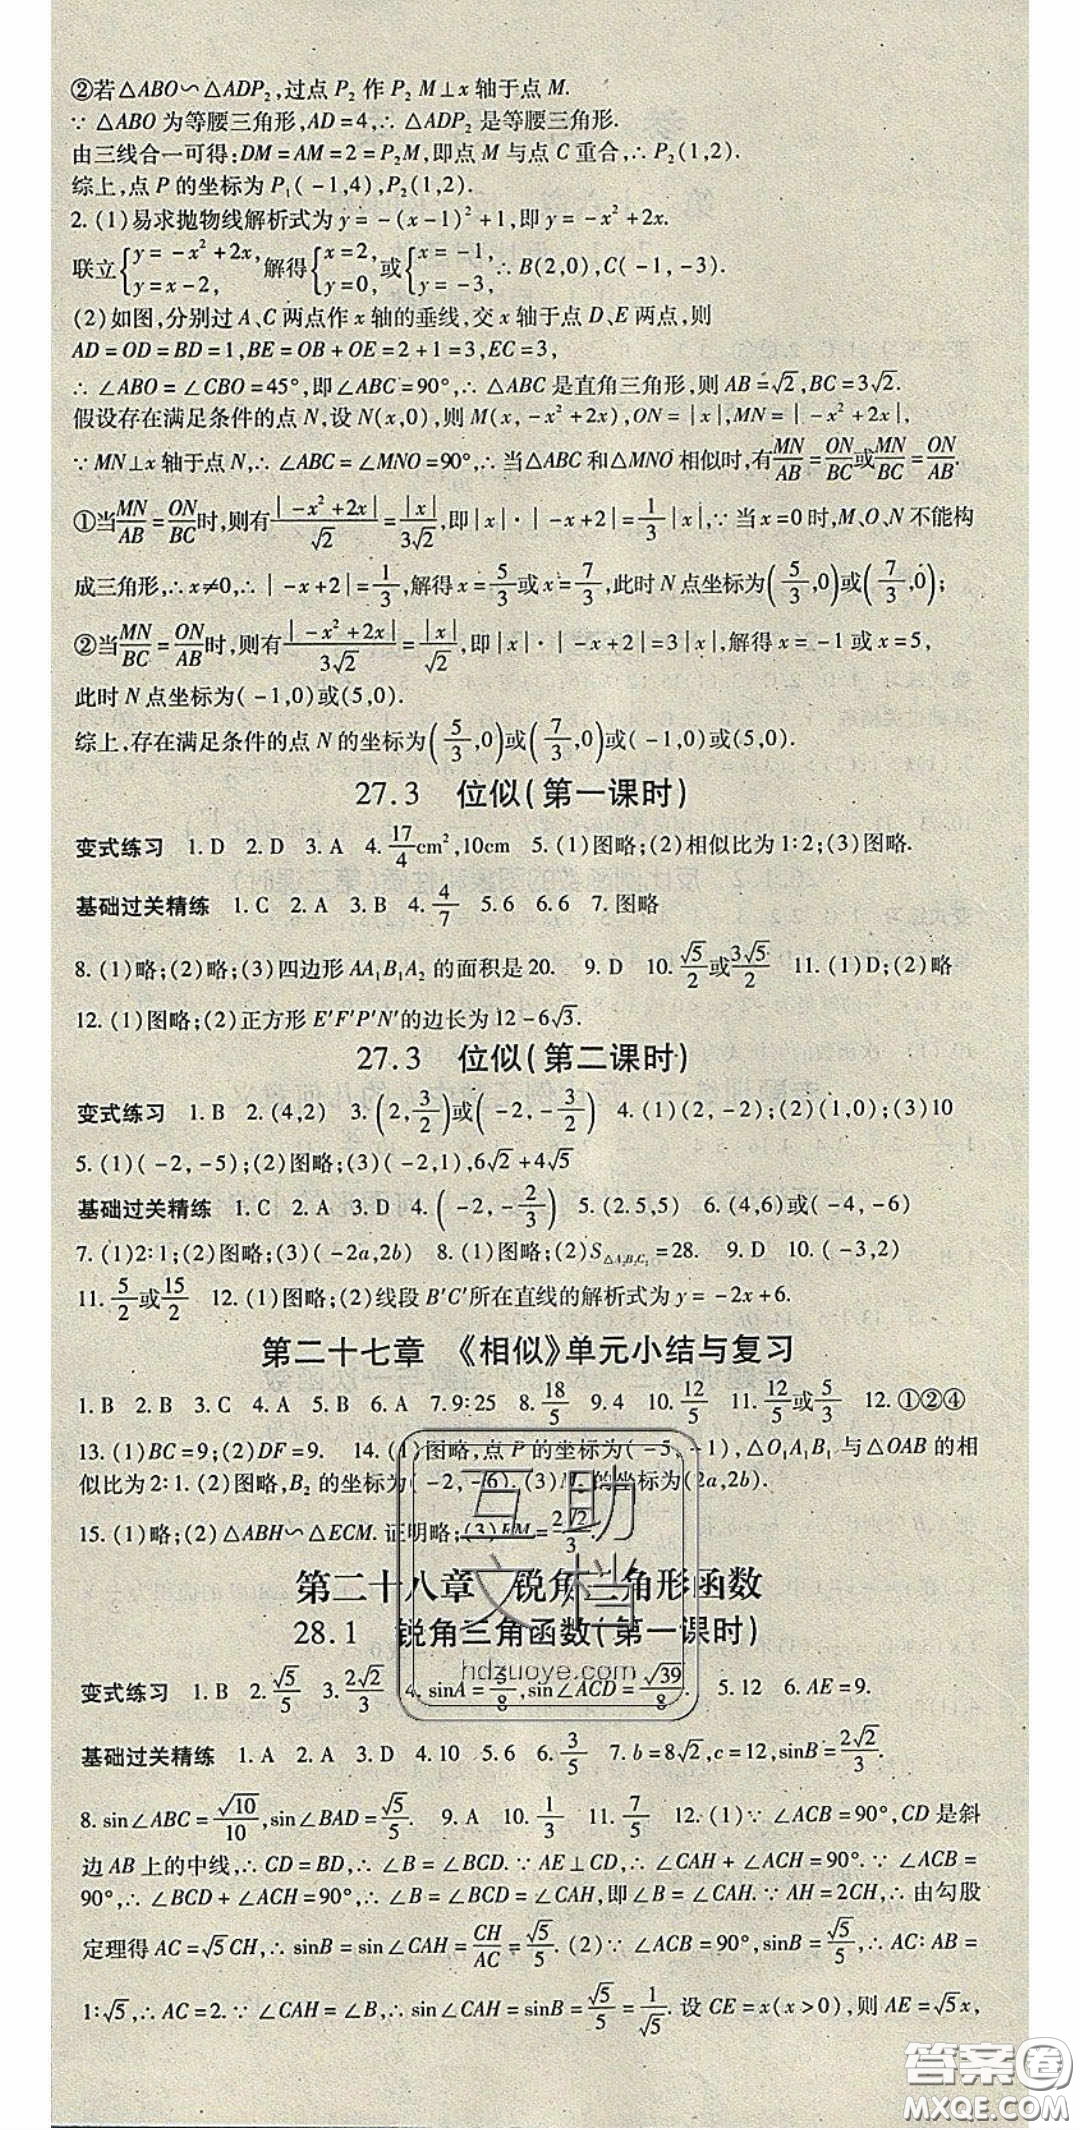 ②若△ABO∽△ADP₂,过点 P₂ 作 P₂M⊥x 轴于点 M.
∵ △ABO 为等腰三角形,AD=4,∴ △ADP₂ 是等腰三角形.
由三线合一可得:DM=AM=2=P₂M,即点 M 与点 C 重合,∴ P₂(1,2).
综上,点 P 的坐标为 P₁(-1,4),P₂(1,2).
2. (1)易求抛物线解析式为 y=-(x-1)²+1,即 y=-x²+2x.
联立{y=-x²+2x, y=x-2, 解得{x=2, y=0, 或{x=-1, y=-3, ∴ B(2,0),C(-1,-3).
(2)如图,分别过 A、C 两点作 x 轴的垂线,交 x 轴于点 D、E 两点,则
AD=OD=BD=1,BE=OB+OE=2+1=3,EC=3,
∴ ∠ABO=∠CBO=45°,即∠ABC=90°,∴ △ABC 是直角三角形,则 AB=√2,BC=3√2.
假设存在满足条件的点 N,设 N(x,0),则 M(x,-x²+2x),ON=|x|,MN=|-x²+2x|,
∵ MN⊥x 轴于点 N,∴ ∠ABC=∠MNO=90°,∴ 当△ABC 和△MNO 相似时,有MN/AB=ON/BC或MN/BC=ON/AB.
①当MN/AB=ON/BC时,则有|-x²+2x|/√2=|x|/3√2,即|x|·|-x+2|=1/3|x|,∵ 当 x=0 时,M、O、N 不能构
成三角形,∴ x≠0,∴ |-x+2|=1/3,解得 x=5/3或 x=7/3,此时 N 点坐标为(5/3,0)或(7/3,0);
②当MN/BC=ON/AB时,则有|-x²+2x|/3√2=|x|/√2,即|x|·|-x+2|=3|x|,解得 x=-1 或 x=5,
此时 N 点坐标为(-1,0)或(5,0).
综上,存在满足条件的点 N 的坐标为(5/3,0)或(7/3,0)或(-1,0)或(5,0).
27.3 位似(第一课时)
变式练习 1. D 2. D 3. A 4. 17/4cm²,10cm 5. (1)图略;(2)相似比为 1∶2;(3)图略.
基础过关精练 1. C 2. A 3. B 4. 4/7 5. 6 6. 6 7. 图略
8. (1)略;(2)略;(3)四边形 AA₁B₁A₂ 的面积是 20. 9. D 10. √5/2或3√5/2 11. (1)D;(2)略
12. (1)图略;(2)正方形 E′F′P′N′的边长为 12-6√3.
27.3 位似(第二课时)
变式练习 1. B 2. (4,2) 3. (2,3/2)或(-2,-3/2) 4. (1)(2,-2);(2)(1,0);(3)10
5. (1)(-2,-5);(2)图略;(3)(-2,1),6√2+4√5
基础过关精练 1. C 2. A 3. D 4. (-2,-2/3) 5. (2.5,5) 6. (4,6)或(-4,-6)
7. (1)2∶1;(2)图略;(3)(-2a,2b) 8. (1)图略;(2)S△A₂B₂C₂=28. 9. D 10. (-3,2)
11. 5/2或15/2 12. (1)图略;(2)线段 B′C′所在直线的解析式为 y=-2x+6.
第二十七章 《相似》单元小结与复习
1. B 2. B 3. C 4. A 5. B 6. A 7. 9∶25 8. 18/5 9. 4 10. 12/5 11. 12/5或5/3 12. ①②④
13. (1)BC=9;(2)DF=9. 14. (1)图略,点 P 的坐标为(-5,-1),△O₁A₁B₁ 与△OAB 的相
似比为 2∶1. (2)图略,B₂ 的坐标为(-2,-6). (3)M 的坐标为(2a,2b).
15. (1)略;(2)△ABH∽△ECM. 证明略;(3) M=2√2/3.
第二十八章 锐角三角形函数
28.1 锐角三角函数(第一课时)
变式练习 1. B 2. √5/5 3. 2√2/3 4. sinA=5/8,sin∠ACD=√39/8. 5. 12 6. AE=9.
基础过关精练 1. A 2. A 3. D 4. 10 5. 6 6. 3/5 7. b=8√2,c=12,sinB=2√2/3.
8. sin∠ABC=√10/10,sin∠BAD=√5/5. 9. A 10. 1/3 11. 7/5 12. (1)∵ ∠ACB=90°,CD 是斜
边 AB 上的中线,∴ CD=BD,∴ ∠B=∠BCD. ∵ AE⊥CD,∴ ∠CAH+∠ACH=90°. ∵ ∠ACB=
90°,∴ ∠BCD+∠ACH=90°,∴ ∠B=∠BCD=∠CAH,即∠B=∠CAH. ∵ AH=2CH,∴ 由勾股
定理得 AC=√5CH,∴ sinB=sin∠CAH=CH/AC=√5/5. (2)∵ ∠ACB=90°,sinB=√5/5,∴ AC∶AB=
1∶√5,∴ AC=2. ∵ ∠CAH=∠B,∴ sin∠CAH=sinB=√5/5=1/√5. 设 CE=x(x>0),则 AE=√5x,
互助
文档
hdzuoye.com
答案圈
MXQE.COM